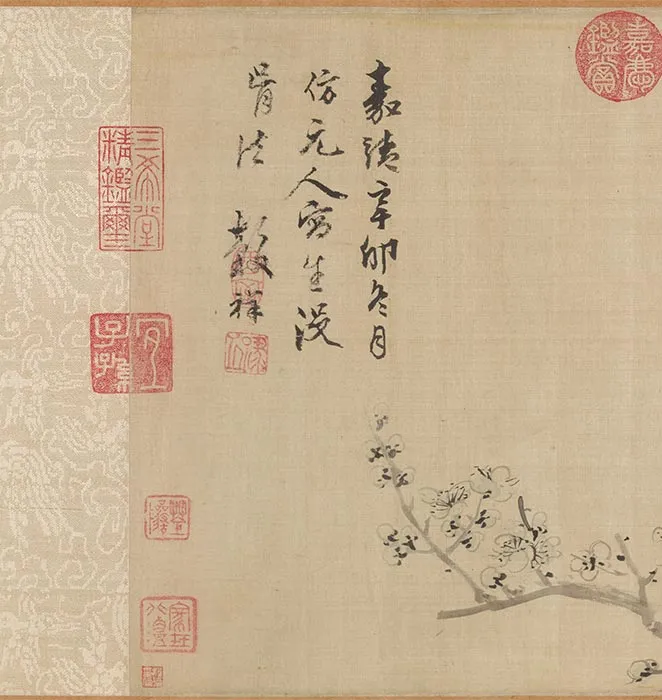 嘉慶
鑑賞
嘉靖辛卯冬月
仿元人寫生没
骨法 穀祥
三希堂
精鑑璽
宜
子孫